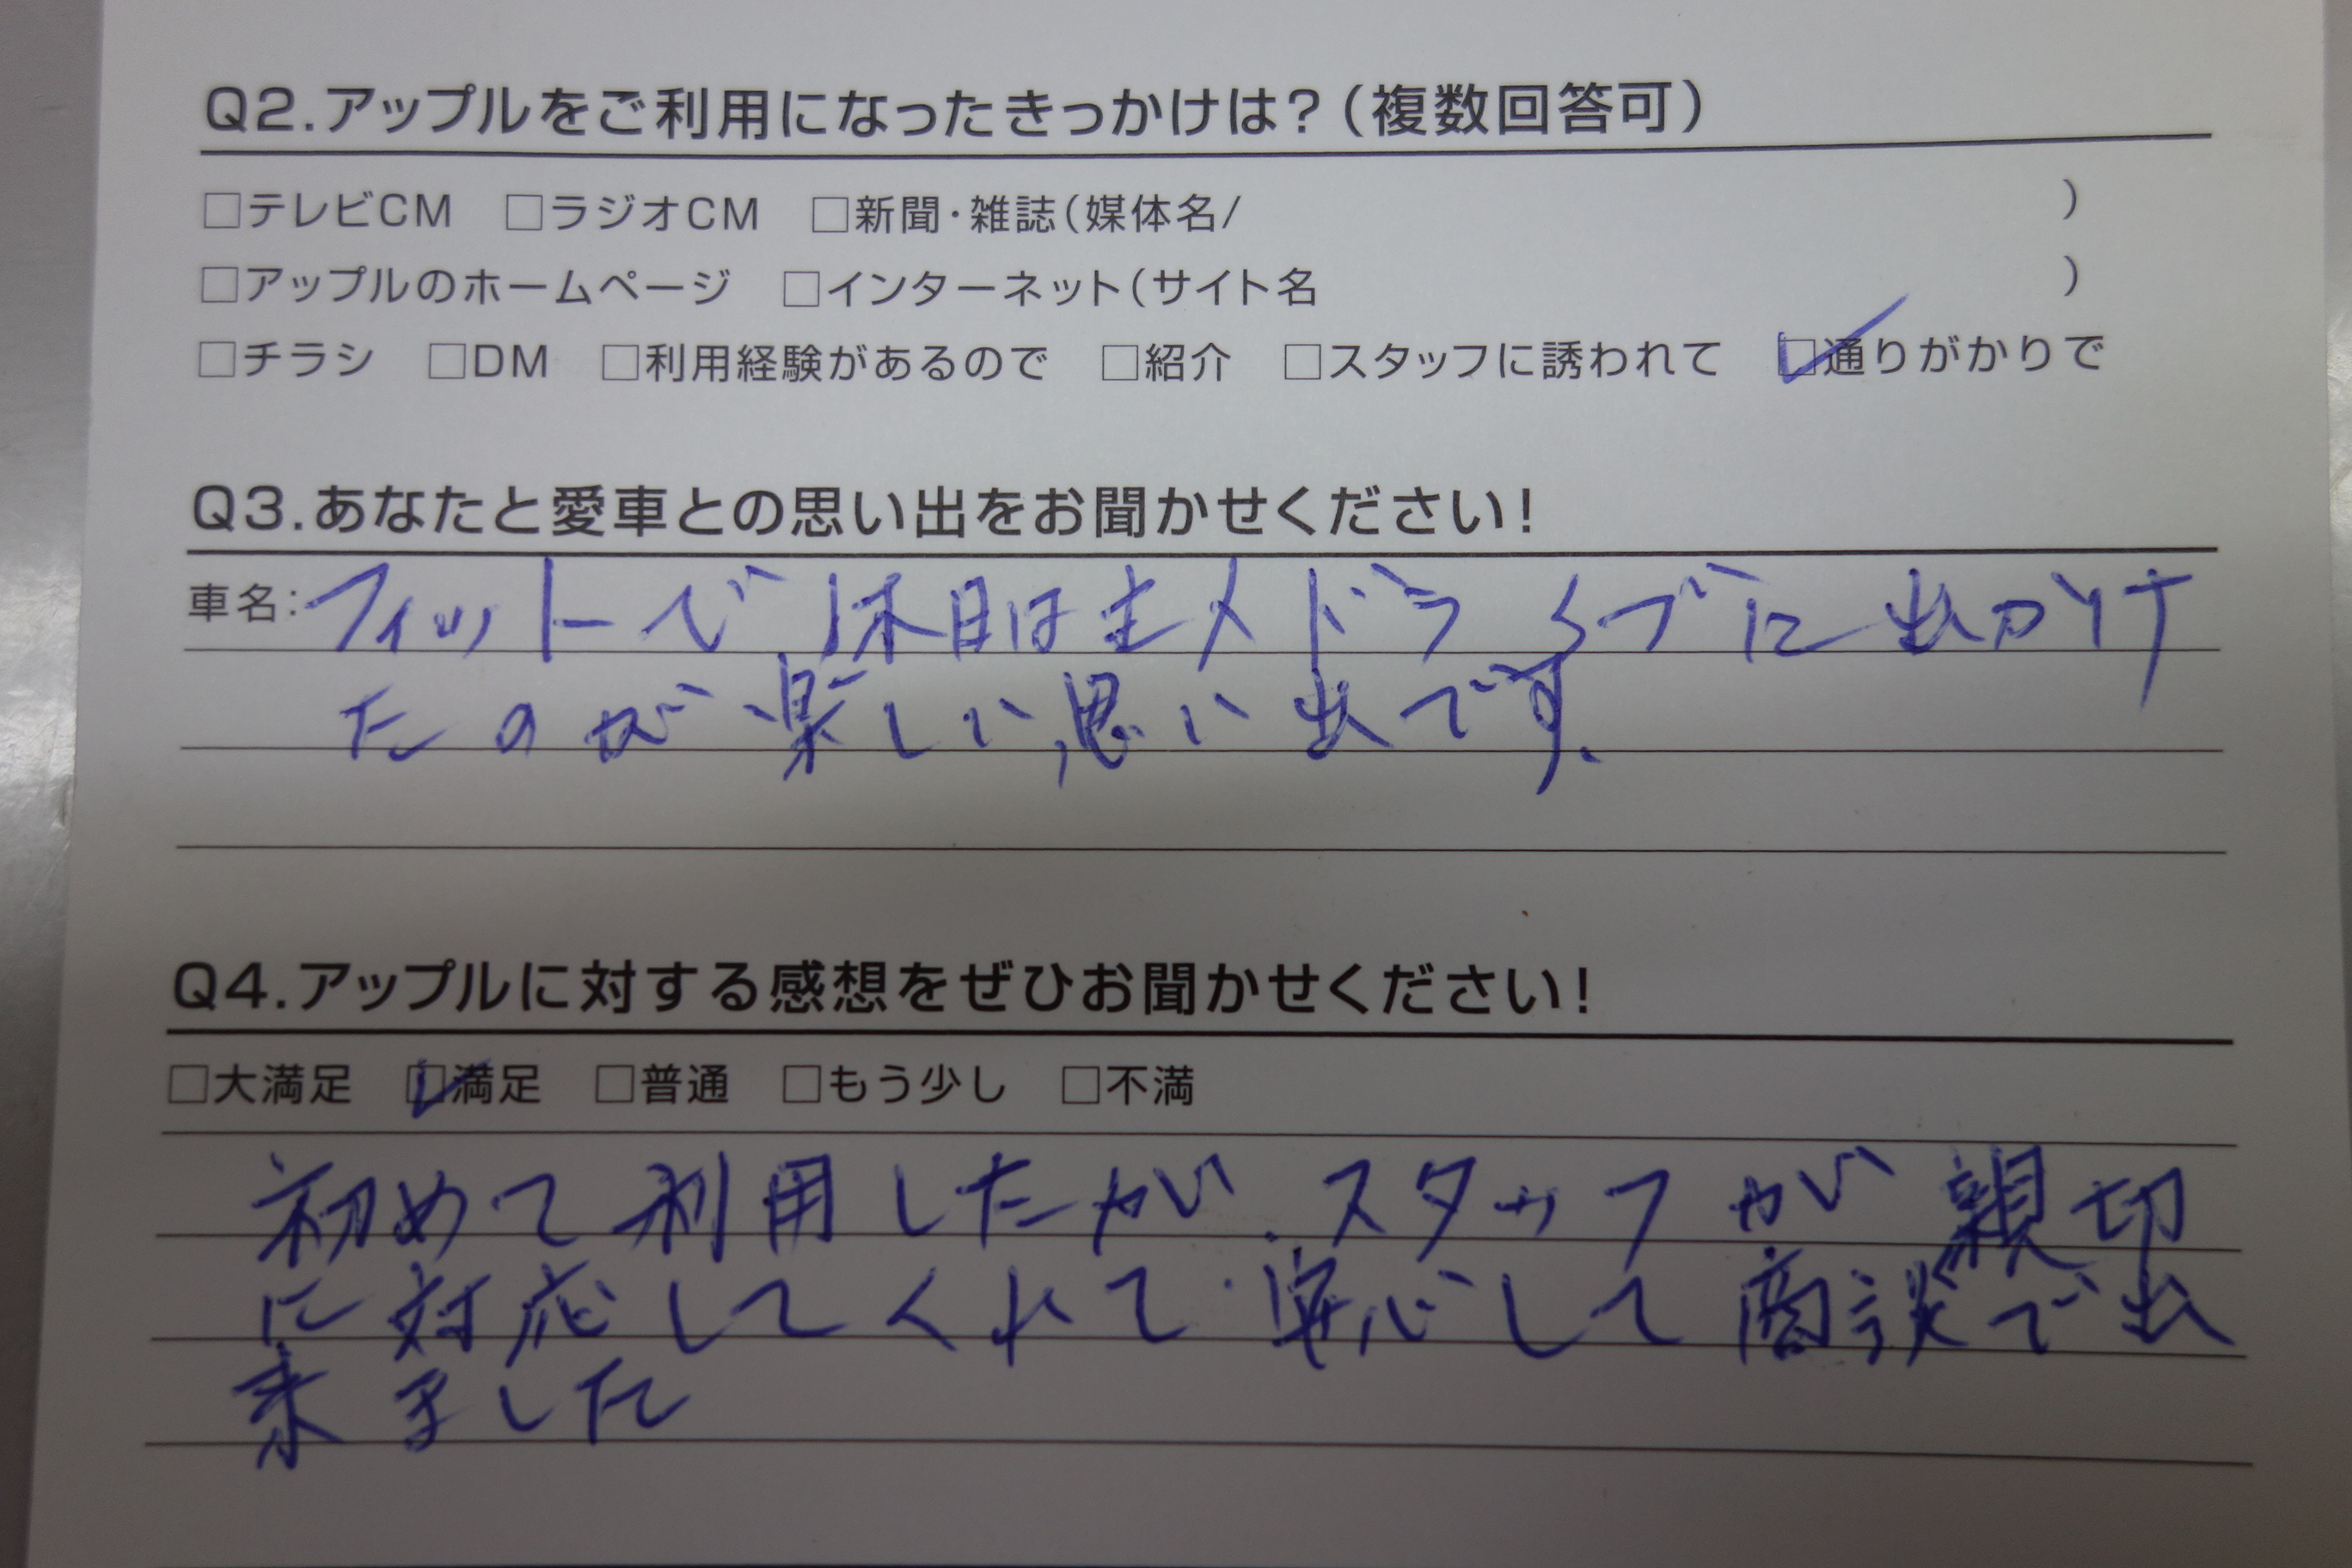 Q2.アップルをご利用になったきっかけは?(複数回答可)
□テレビCM □ラジオCM □新聞・雑誌(媒体名/ )
□アップルのホームページ □インターネット(サイト名 )
□チラシ □DM □利用経験があるので □紹介 □スタッフに誘われて ☑通りがかりで
Q3.あなたと愛車との思い出をお聞かせください!
車名:フィットで休日は主人とドライブに出かけ
たのが楽しい思い出です。
Q4.アップルに対する感想をぜひお聞かせください!
□大満足 ☑満足 □普通 □もう少し □不満
初めて利用したが、スタッフが親切
に対応してくれて、安心して商談で出
来ました